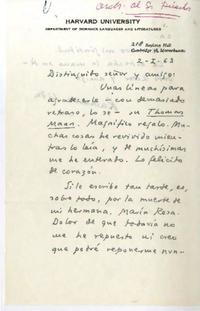 HARVARD UNIVERSITY
DEPARTMENT OF ROMANCE LANGUAGES AND LITERATURES
Boylston Hall
Cambridge 38, Massachusetts
2-I-63
Distinguido señor y amigo:
Unas líneas para
agradecerle – con demasiado
retraso, lo sé – su Thomas
Mann. Magnífico regalo. Mu-
chas cosas he revivido mien-
tras lo leía, y de muchísimas
me he enterado. Lo felicito
de corazón.
Si le escribo tan tarde, es,
sobre todo, por la muerte de
mi hermana, María Rosa.
Dolor de que todavía no
me he repuesto ni creo
que podré reponerme nun-